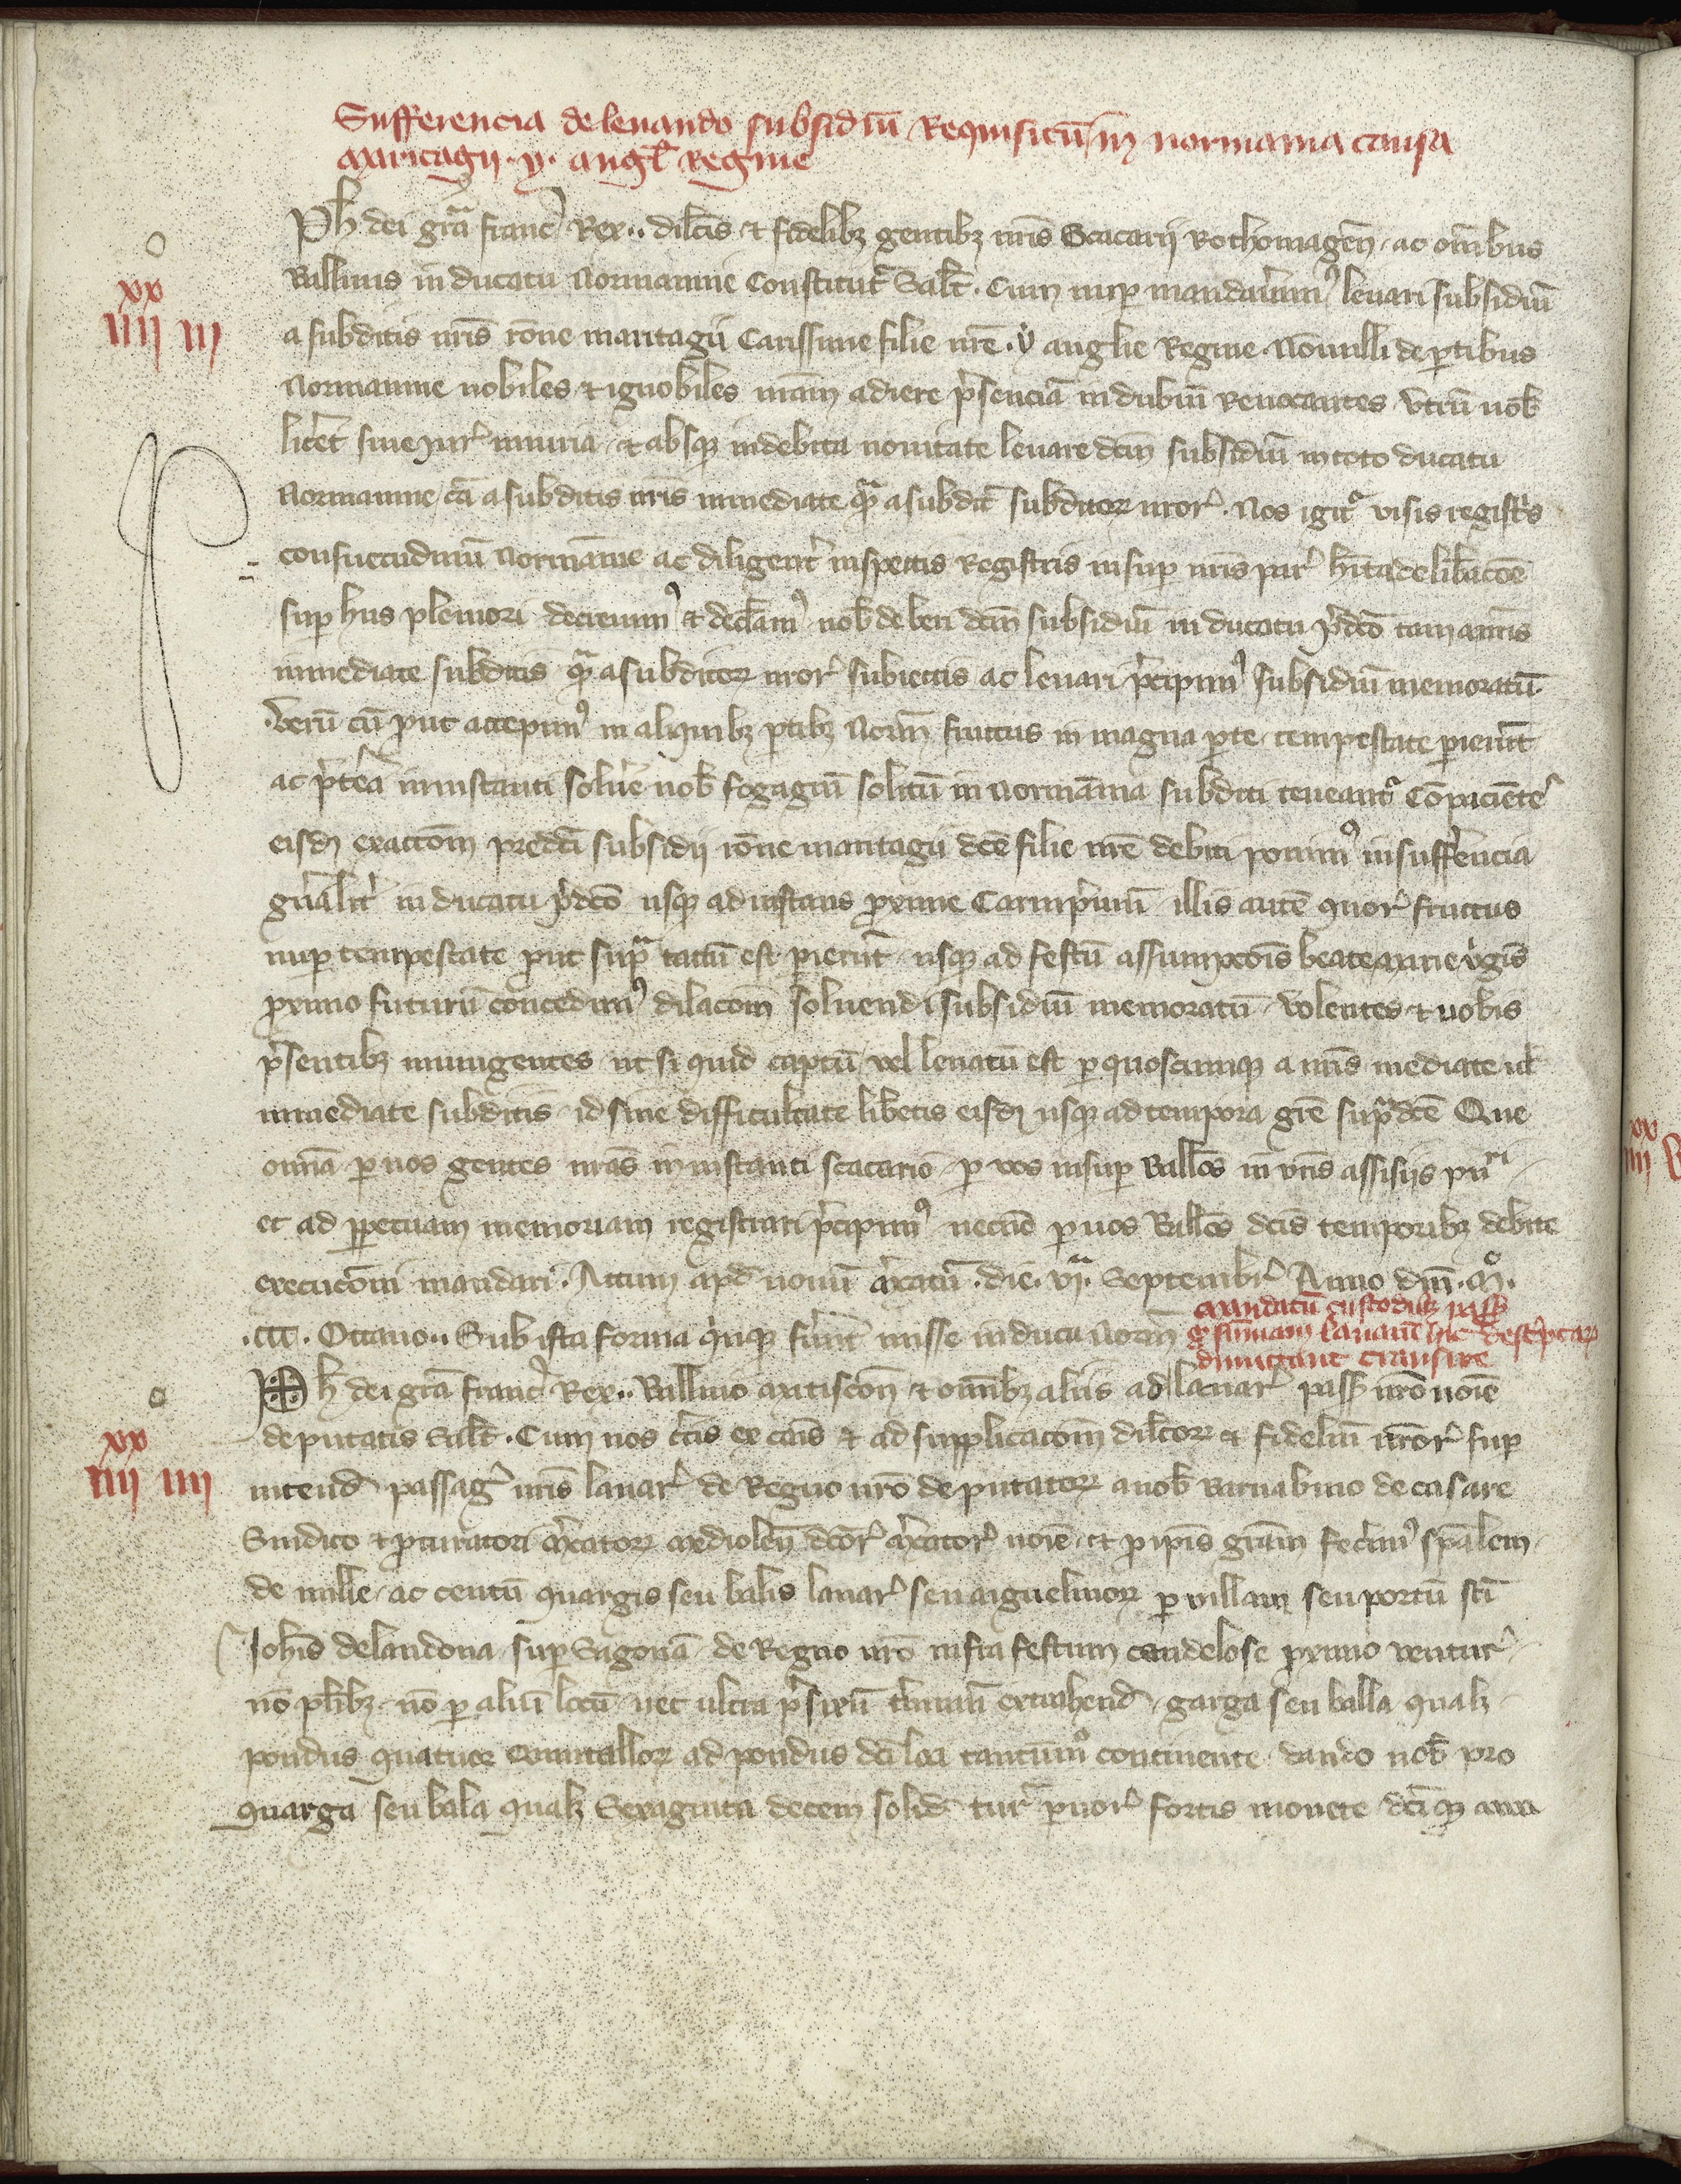 Sufferencia de levando subsidiū Requisitū in normania causa
maritagii .y. angl̄ Regine
Ph̄ dei gr̄a franc̄ Rex .. dilc̄is ⁊ fidelibꝫ gentibꝫ nr̄is Scacarij Rothomagen̄ ac om̄ibus
Balliuis in ducatu Normannie Constitut̄ Salt̄. Cum nup̄ mandauerimꝰ leuari subsidiū
xx
iiii iii
a subditis nr̄is rōne maritagii Carissime filie nr̄e .y. anglie Regine. Nōnulli de ꝑtibus
Normannie nobiles ⁊ ignobiles nr̄am adiere p̄senciā in dubiū Reuocantes vtrū nob̄
lic̄et sine iur̄ iniuria ⁊ absqꝫ indebita nouitate leuare dc̄m subsidiū in toto ducatu
Normannie tā a subditis nr̄is inmediate qᵃ a subdit̄ subditoꝝ nr̄or̄. Nos igit̉ visis registr̄s
consuetudinū Normānie ac diligent̄ inspectis Registris insup̄ nr̄is par̄ hīta delib̄acōe
sup̄ hiis pleniori decreuimꝰ ⁊ decl̄amꝰ nob̄ deberi dc̄m subsidiū in ducatu p̄dc̄o tam a nr̄is
inmediate subditis qᵃ a subditoꝝ nr̄or̄ subiectis ac leuari p̄cipimꝰ subsidiū memoratū.
Verū cū put accepimꝰ in aliquibꝫ ꝑtibꝫ Norm̄ fructus in magna ꝑte tempestate ꝑierūt
ac p̄t̄ea in instanti solu̅e nob̄ fogagiū solitū in Normānia subditi teneant̉ Cōpacient̄es
eisdꝫ exactōm predc̄i subsidij rōne maritagii dc̄e filie nr̄e debiti ponimꝰ in suff̄rencia
gn̄alit̄ in ducatu p̄dc̄o usqꝫ ad instans p̄xime Carnip̄uiū illis autē quor̄ fructus
nup̄ tempestate put supᵃ tactū est ꝑierūt usqꝫ ad festū assumpc̄ōis beate marie v̓gis̄
p̄ximo futurū concedimꝰ dilacōm soluendi subsidiū memoratū. Volentes ⁊ uobis
p̄sentibꝫ iniungentes ut si quid captū vel leuatū est ꝑ quoscunqꝫ a nr̄is mediate ul̄
inmediate subditis id sine difficultate lib̄etis eisdꝫ usqꝫ ad tempora gr̄e supᵃdc̄e Que
omīa ꝑ uos gentes nr̄as in instanti scacario ꝑ vos insup̄ Ball̄os in vr̄is assisiis pu̅ri
et ad ꝑpetuam memoriam registrari p̄cipimꝰ necnō ꝑ uos Ball̄os dc̄is temporibꝫ debite
execucōni mandari. Actum apd̄ nouū m̄catū. die .viᵃ. Septembr̄ Anno dn̄i .mº.
.ccc. Octauo.. Sub ista forma quīqꝫ fu̅ūt misse in ducatu Norm̄
mandatū custodibꝫ pass̄
qd̓ sūmam lanarū hic descⁱptar̄
dimittant transire
Ph̄ dei gr̄a franc̄ Rex.. Balliuo matiscon̄ ⁊ om̄ibꝫ aliis ad lanar̄ pass̄ nr̄o noīe
deputatis Salt̄. Cum nos c̄tis ex cāis ⁊ ad supplicacōm dilc̄oꝝ ⁊ fideliū nr̄or̄ sup̄
xx
iiii iiii
intend̄ passag̓ nr̄is lanar̄ de Regno nr̄o deputatoꝝ a nob̄ Barnabino de casare
Sindico ⁊ ꝓcuratori m̓catoꝝ mediolen̄ dc̄or̄ m̓cator̄ noīe ⁊ ꝑ ip̄is gr̄am fec̓imꝰ sp̄alem
de mille ac centū quargis seu balis lanar̄ seu aiguelinoꝝ ꝑ villam seu portū sc̄i
Joh̄is de landona sup̄ Sagonā de Regno nr̄o infra festum candelose p̄ximo ventur̄
nō pl̄ibꝫ nō ꝑ aliū locū nec ultra p̄fixū t̄minū extrahend̄ garga seu balla qualꝫ
pondus quatuor quintalloꝝ ad pondus dc̄i loci tantūmº continente dando nob̄ pro
quarga seu bala qualꝫ Sexaginta decem solid̄ turᵃ ꝑuor̄ fortis monete dc̄iqꝫ